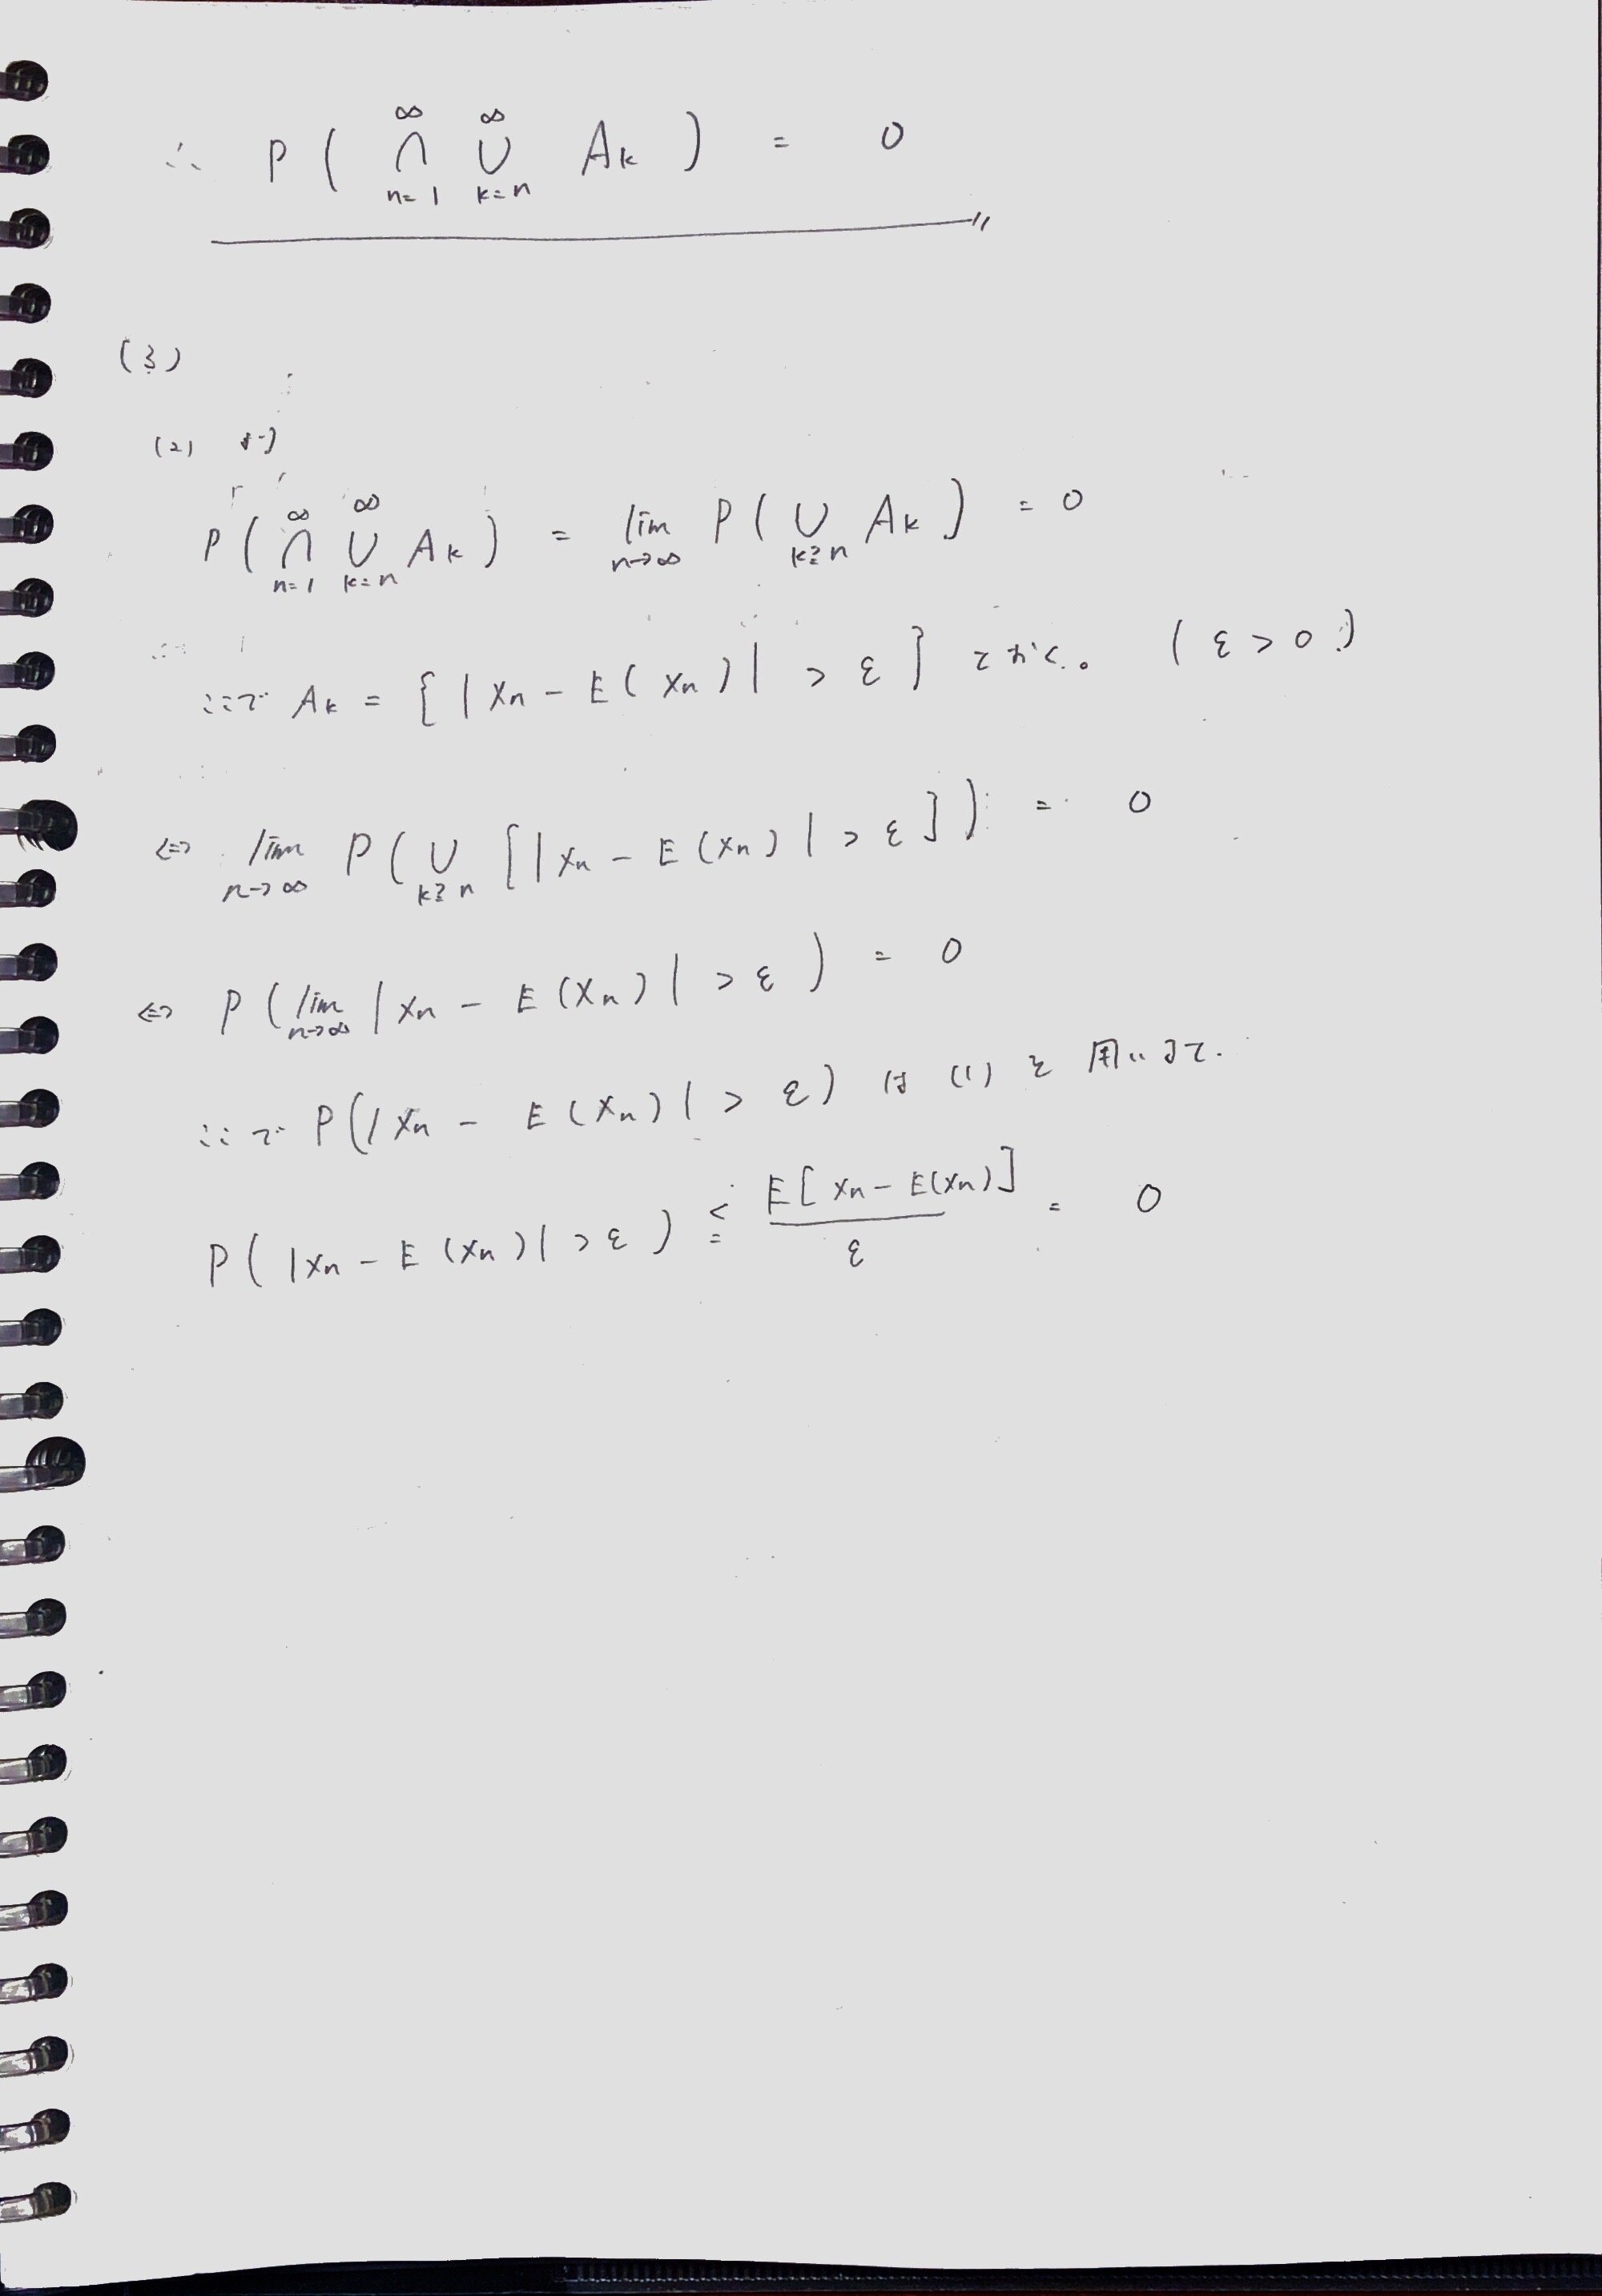 ∴ P( ∩_{n=1}^{∞} ∪_{k=n}^{∞} A_k ) = 0
(3)
(2) より
P( ∩_{n=1}^{∞} ∪_{k=n}^{∞} A_k ) = lim_{n→∞} P( ∪_{k≧n} A_k ) = 0
ここで A_k = { |X_n - E(X_n)| > ε } とおく。 (ε > 0)
⇔ lim_{n→∞} P( ∪_{k≧n} { |X_n - E(X_n)| > ε } ) = 0
⇔ P( lim_{n→∞} |X_n - E(X_n)| > ε ) = 0
ここで P( |X_n - E(X_n)| > ε ) は (1) を 用いて.
P( |X_n - E(X_n)| > ε ) ≦ E[X_n - E(X_n)] / ε = 0